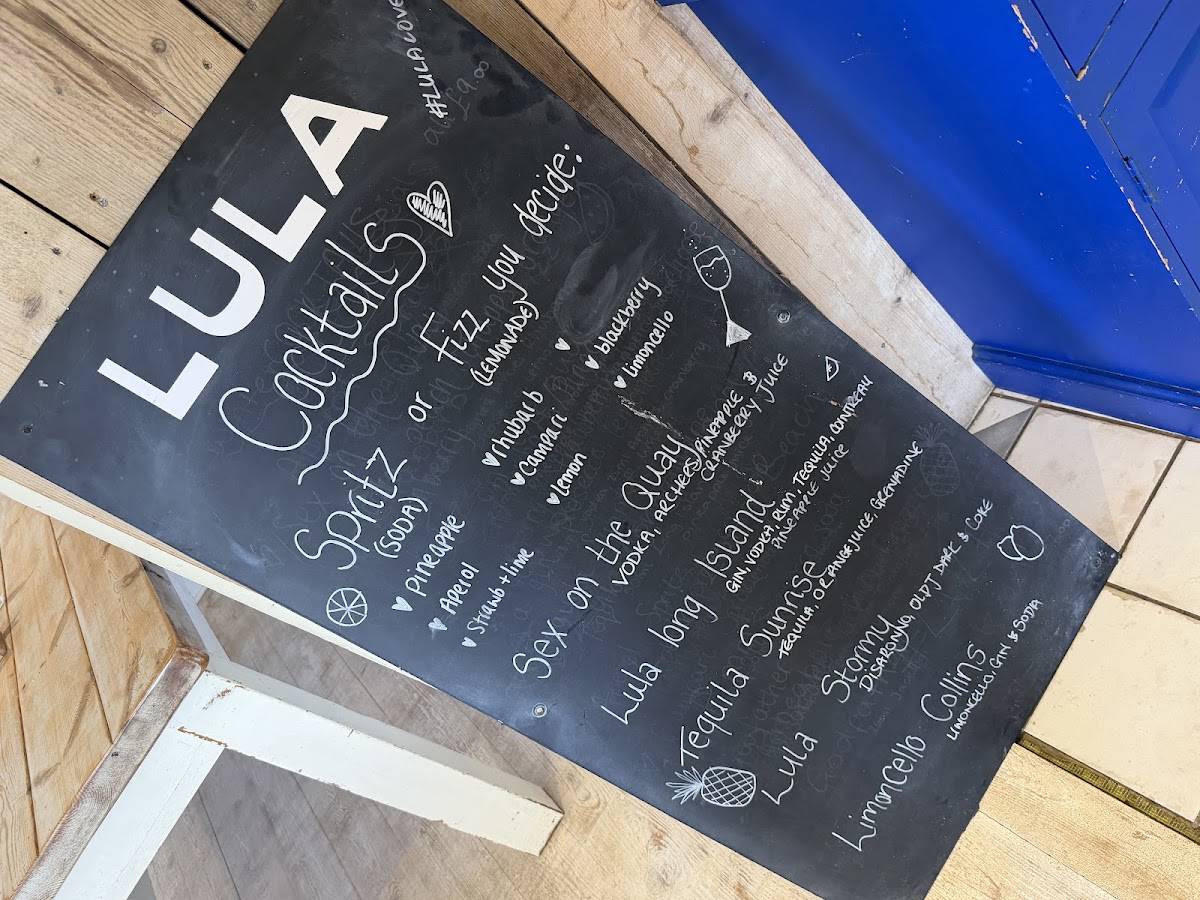 #LULALOVE
all £9.00
LULA
Cocktails
Spritz or Fizz you decide:
(SODA) (LEMONADE)
Pineapple
Aperol
Strawb + lime
rhubarb
Campari
Lemon
blackberry
limoncello
Sex on the Quay
VODKA, ARCHEES, PINEAPPLE &
CRANBERRY JUICE
Lula long Island
GIN, VODKA, RUM, TEQUILA, COINTREAU
PINEAPPLE JUICE
Tequila Sunrise
TEQUILA, ORANGE JUICE, GRENADINE
Lula Stormy
DISARONNO, OLD J DARK & COKE
Limoncello Collins
LIMONCELLO, GIN & SODA